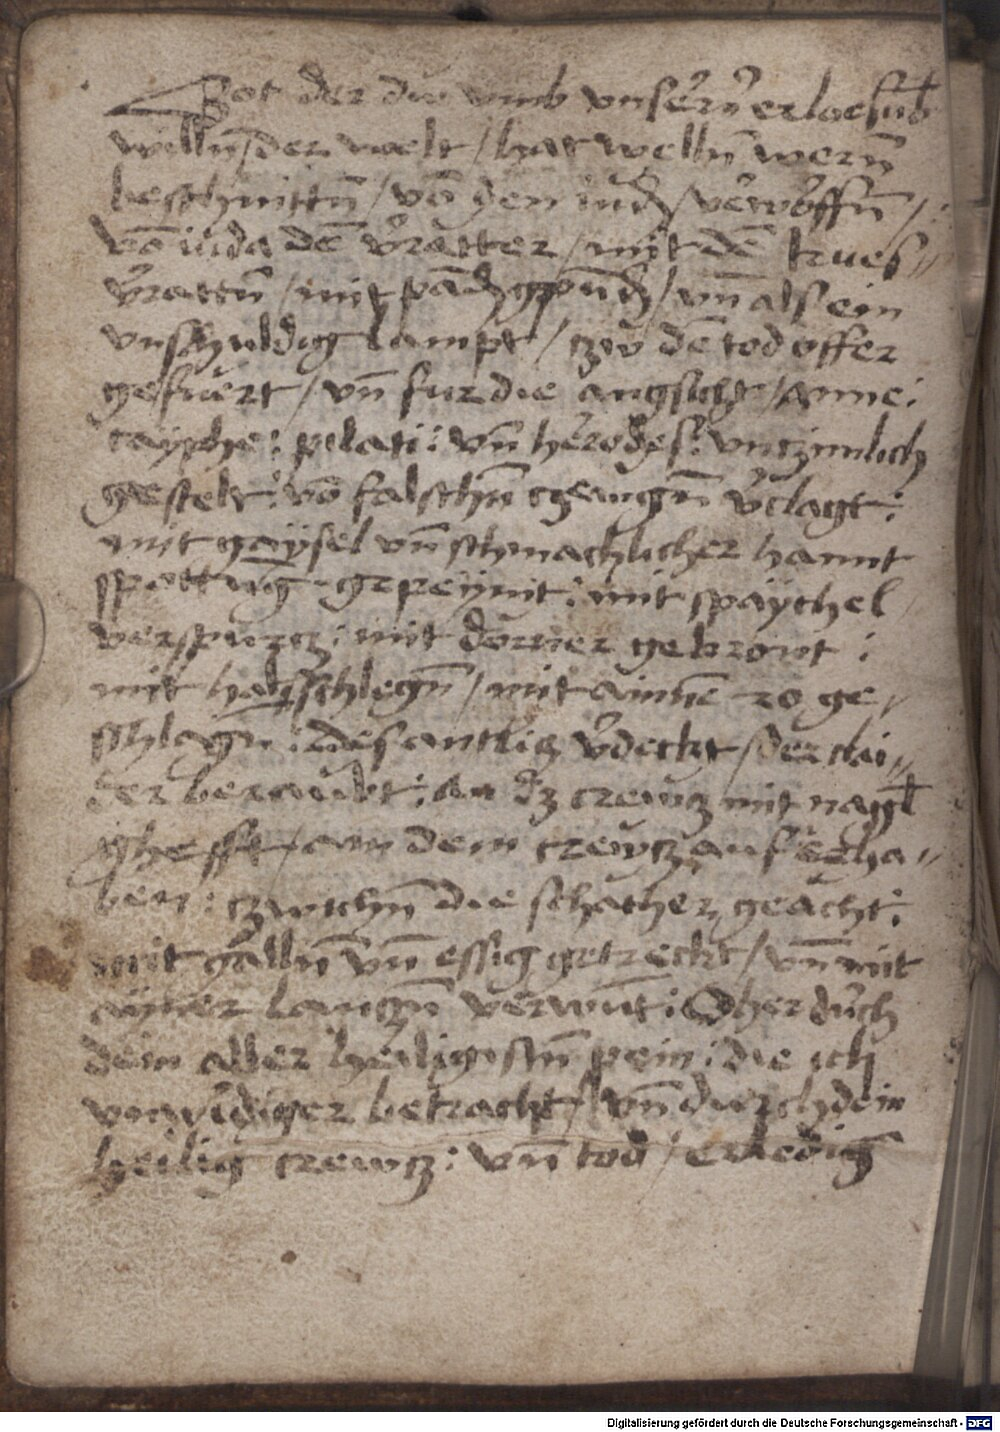 Got der du umb unsern erlosung
willn der welt / hat welln wern
beschnittn / vō den iudn / verworffn /
vō iuda dē vratter / mit dē kues //
vrattn / mit pādn gepundn / vn̄ als ein
unschuldig lampt / czu dē tod offer
gefuert / vn̄ fur die angsicht / anne :
cayphe : pilati : vn̄ herodes : unczimlich
gestelt : vō falschn czewgn vclagt :
mit gaysel vn̄ schmachlicher hannt
spottung gepeynit : mit spaychel
verspurcz : mit dorner gekront :
mit halsschlegn / mit ainnē ro ge /
schlagn : des antlicz vdeckt / der clai //
der beraubt : an dz crewcz mit nagl
ghefft / an dem crewcz auferha //
ben : czwischn die schacher geacht :
mit galln vn̄ essig getreckt / vn̄ mit
ayner langn verwūt : O her durch
dein aller heiligistn pein : die ich
unwirdiger betracht / vn̄ durch dein
heilig crewcz : vn̄ tod / erledig
Digitalisierung gefördert durch die Deutsche Forschungsgemeinschaft - DFG